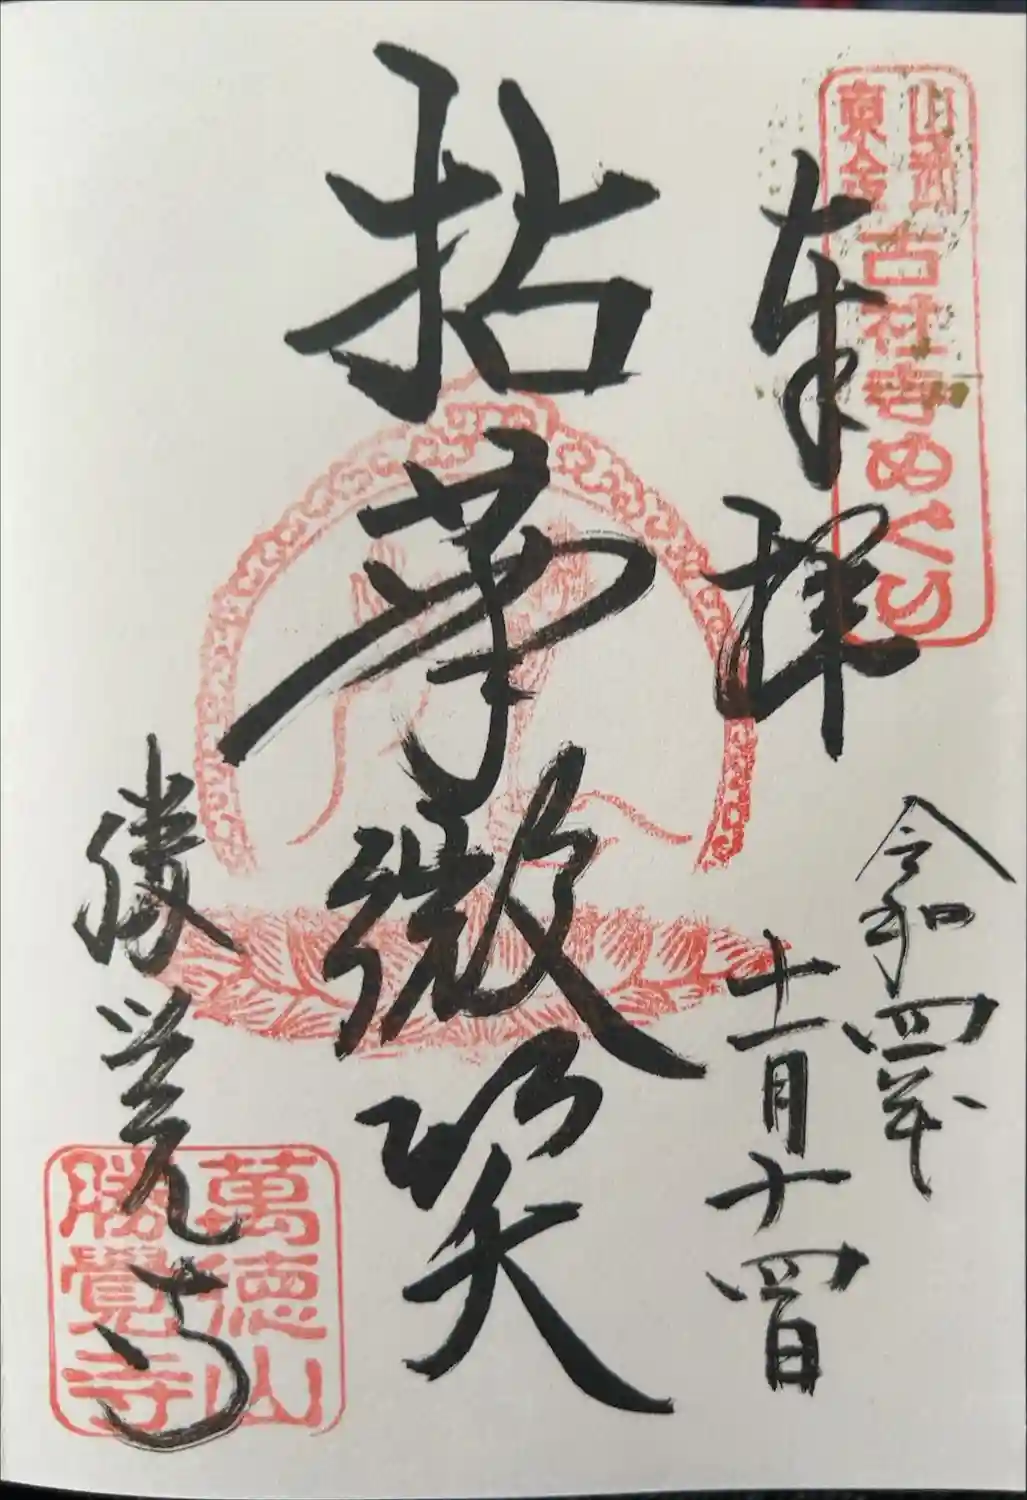 山武
東金
古社寺めぐり
奉拝
令和四年
十一月十四日
拈華微笑
勝覚寺
萬徳山
勝覺寺